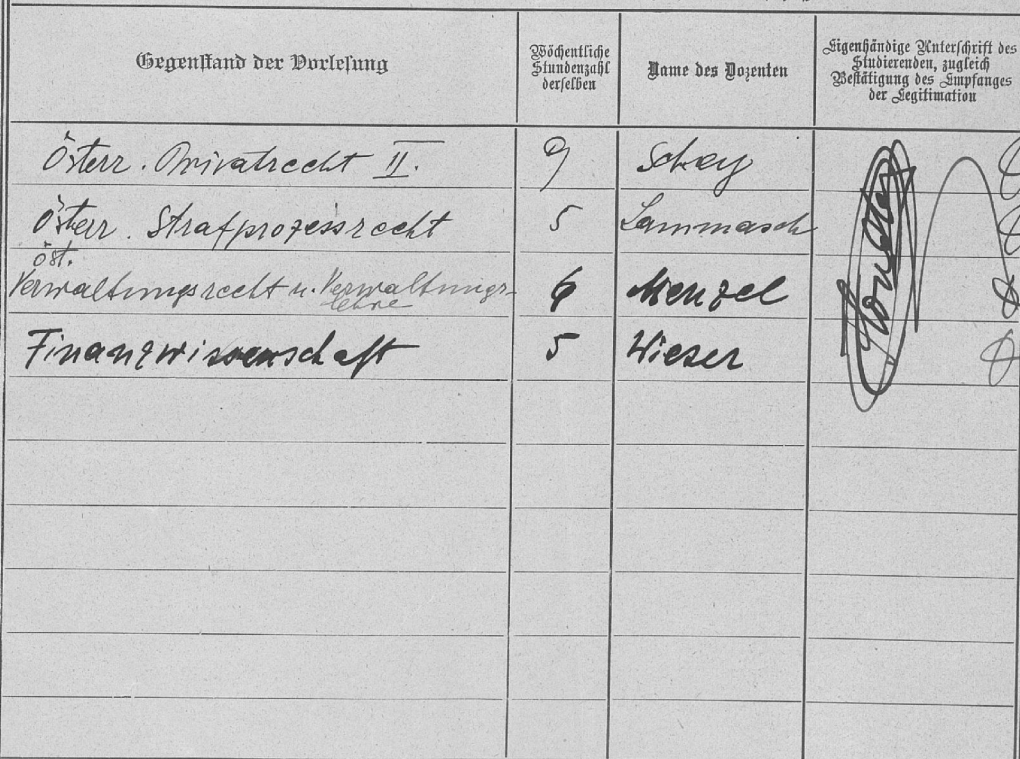 Gegenstand der Vorlesung
Wöchentliche
Stundenzahl
derselben
Name des Dozenten
Eigenhändige Unterschrift des
Studierenden, zugleich
Bestätigung des Empfanges
der Legitimation
Österr. Privatrecht II. 9 Schey
Österr. Strafprozessrecht 5 Lammasch
öst.
Verwaltungsrecht u. Verwaltungs-
lehre 6 Menzel
Finanzwissenschaft 5 Wieser